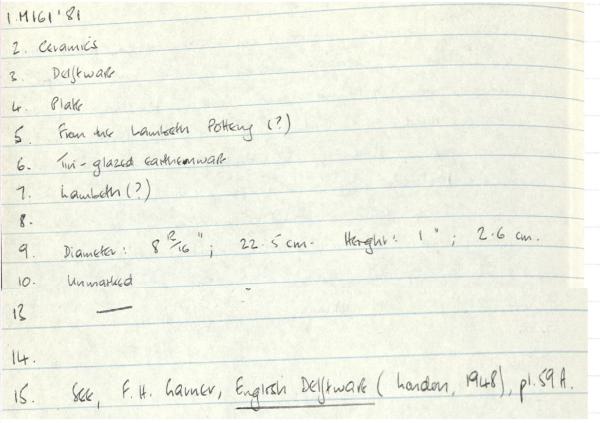 1. M161'81
2. Ceramics
3. Delftware
4. Plate
5. From the Lambeth Pottery (?)
6. Tin-glazed earthenware
7. Lambeth (?)
8.
9. Diameter: 8 /16 "; 22.5 cm. Height: 1 "; 2.6 cm.
10. Unmarked
13 —
14.
15. See, F.H. Garner, English Delftware (London, 1948), pl. 59A.